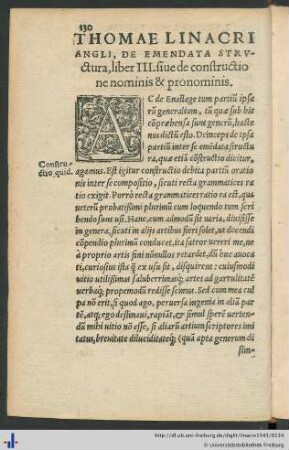 130
THOMAE LINACRI
ANGLI, DE EMENDATA STRV-
ctura, liber III. siue de constructio
ne nominis & pronominis.
AC de Enallage tum partiũ ipsa
rũ generalium, tũ quæ sub his
cõprehensa sunt generũ, hacte
nus dictũ esto. Deinceps de ipsa
partiũ inter se emẽdata structu
ra, quæ etiã cõstructio dicitur,
Constru-
ctio quid.
agamus. Est igitur constructio debita partiũ oratio
nis inter se compositio, sicuti recta grammatices ra
tio exigit. Porrò recta grammatices ratio ea est, qua
veterũ probatissimi plurimũ cum loquendo tum scri
bendo sunt usi. Hanc, cum admodũ sit varia, diuisisse
in genera, sicuti in alijs artibus fieri solet, ut docendi
cõpendio plurimũ conducet, ita fateor uereri me, ne
à proprio artis fini nõnullos retardet, dũ huc auoca
ti, curiosius ista quàm ex usu sit, disquirere: cuiusmodi
uitio utilissimas saluberrimasq; artes ad garrulitatẽ
uerbaq; propemodũ redisse scimus. Sed cum mea cul
pa nõ erit, si quod ago, peruersa ingenia in aliã par
tẽ, atq; ego destinaui, rapiãt, & simul sperẽ uerten-
dũ mihi uitio nõ esse, si aliarũ artium scriptores imi
tatus, breuitate diluciditateq; (quã apta generum di
stin-
http://dl.ub.uni-freiburg.de/diglit/linacre1543/0134
© Universitätsbibliothek Freiburg